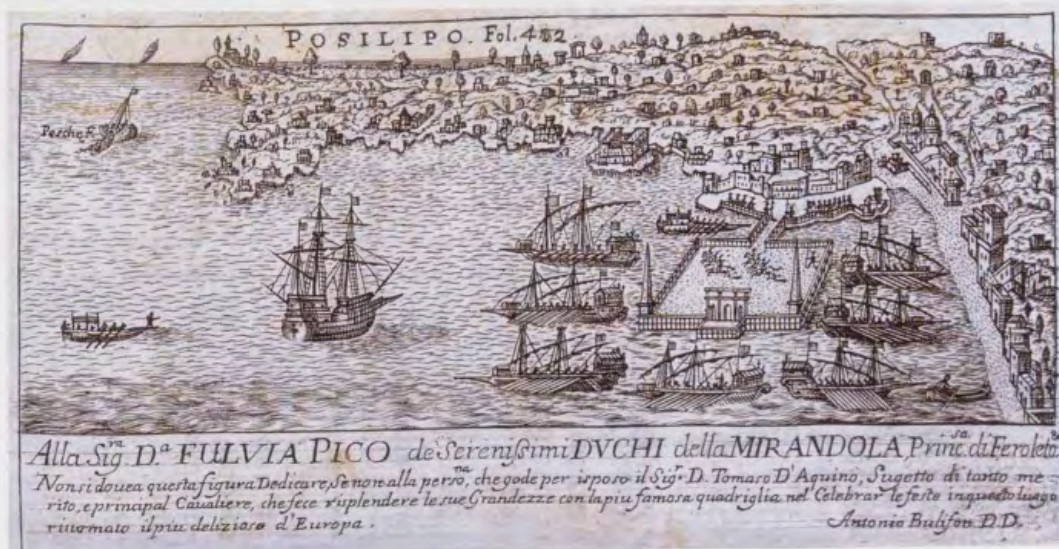 POSILIPO. Fol. 422
Pesche F.
Alla Sig.ra D.a FULVIA PICO de Serenissimi DVCHI della MIRANDOLA, Princ.sa di Feroleto.
Non si douea questa figura Dedicare, se non alla perso.na, che gode per isposo il Sig.r D. Tomaso D'Aquino, Sugetto di tanto me=
rito, e principal Caualiere, che fece risplendere le sue Grandezze con la piu famosa quadriglia nel Celebrar le feste in questo luogo
rinomato il piu delizioso d'Europa.
Antonio Bulifon D.D.